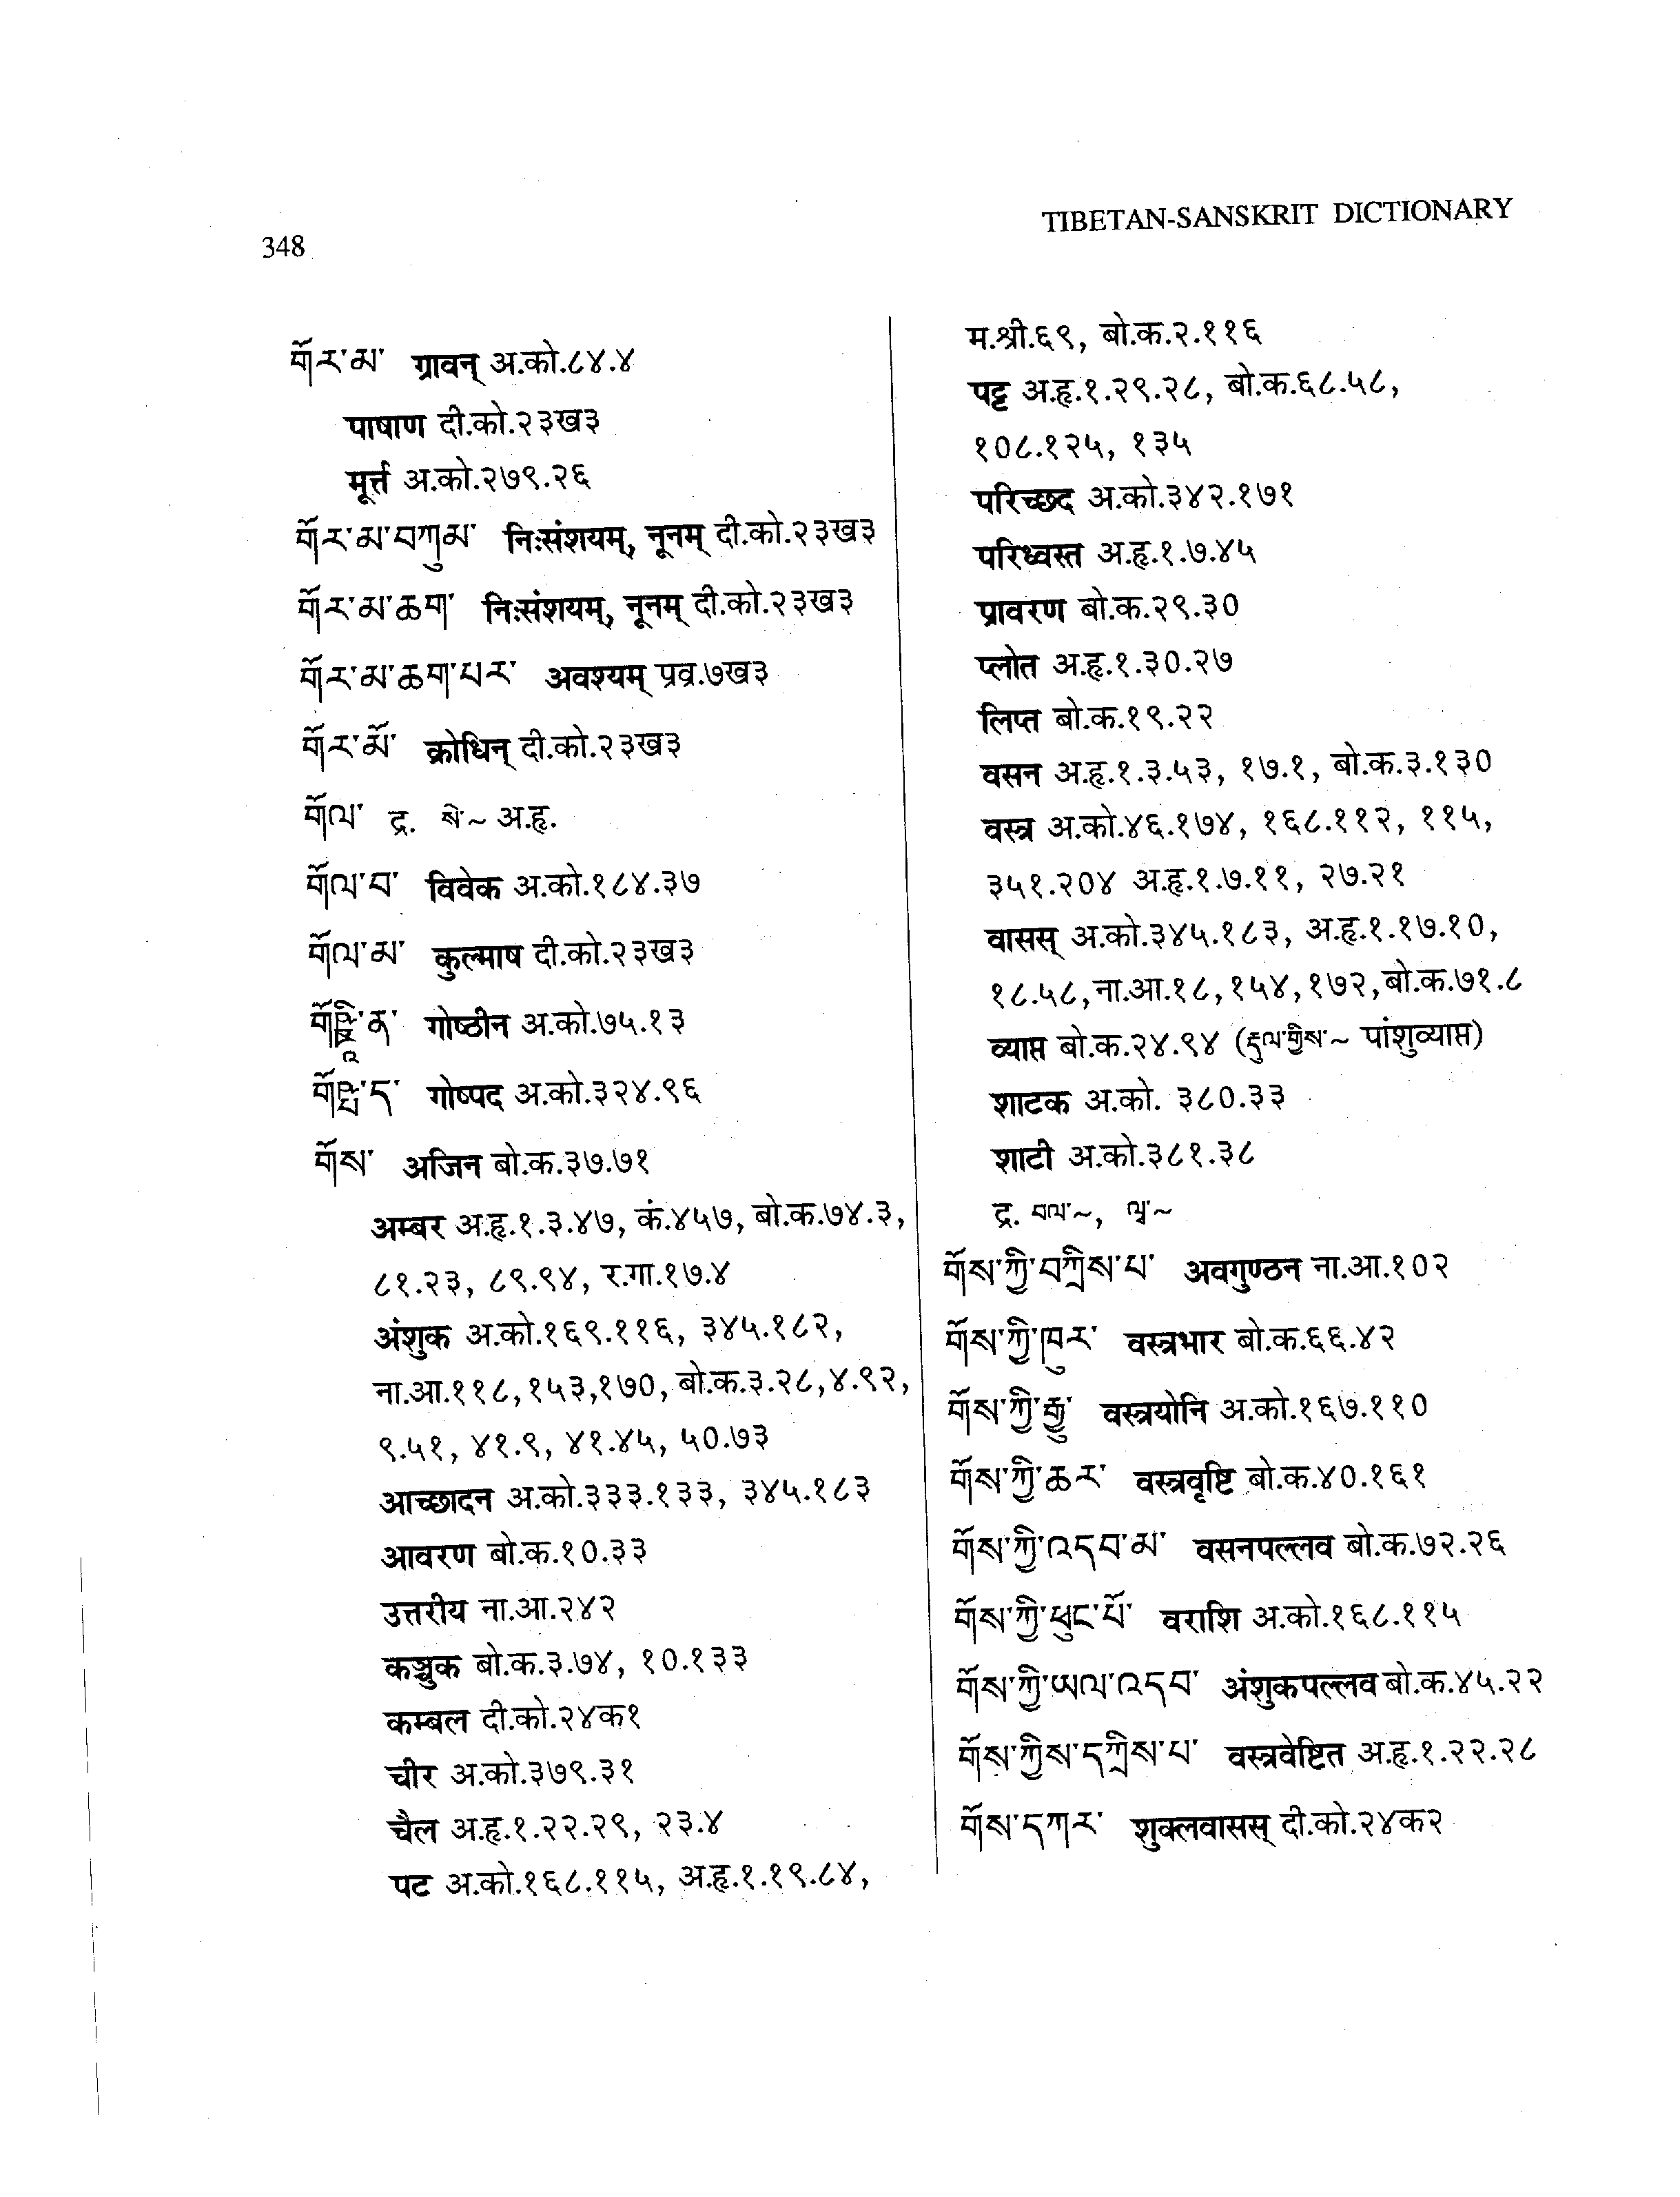 348
TIBETAN-SANSKRIT DICTIONARY
གོར་མ་ ग्रावन् अ.को.८४.४
पाषाण दी.को.२३ख३
मूर्त्त अ.को.२७९.२६
གོར་མ་བཀུམ་ निःसंशयम्, नूनम् दी.को.२३ख३
གོར་མ་ཆག་ निःसंशयम्, नूनम् दी.को.२३ख३
གོར་མ་ཆག་པར་ अवश्यम् प्रव्र.७ख३
གོར་མོ་ क्रोधिन् दी.को.२३ख३
གོལ་ द्र. སེ་~ अ.हृ.
གོལ་བ་ विवेक अ.को.१८४.३७
གོལ་མ་ कुल्माष दी.को.२३ख३
गोष्ठीन अ.को.७५.१३
གོཥྤ་ད་ गोष्पद अ.को.३२४.९६
གོས་ अजिन बो.क.३७.७१
अम्बर अ.हृ.१.३.४७, कं.४५७, बो.क.७४.३,
८१.२३, ८९.९४, र.गा.१७.४
अंशुक अ.को.१६९.११६, ३४५.१८२,
ना.आ.११८,१५३,१७०, बो.क.३.२८,४.९२,
९.५१, ४१.९, ४१.४५, ५०.७३
आच्छादन अ.को.३३३.१३३, ३४५.१८३
आवरण बो.क.१०.३३
उत्तरीय ना.आ.२४२
कञ्चुक बो.क.३.७४, १०.१३३
कम्बल दी.को.२४क१
चीर अ.को.३७९.३१
चैल अ.हृ.१.२२.२९, २३.४
पट अ.को.१६८.११५, अ.हृ.१.१९.८४,
म.श्री.६९, बो.क.२.११६
पट्ट अ.हृ.१.२९.२८, बो.क.६८.५८,
१०८.१२५, १३५
परिच्छद अ.को.३४२.१७१
परिध्वस्त अ.हृ.१.७.४५
प्रावरण बो.क.२९.३०
प्लोत अ.हृ.१.३०.२७
लिप्त बो.क.१९.२२
वसन अ.हृ.१.३.५३, १७.१, बो.क.३.१३०
वस्त्र अ.को.४६.१७४, १६८.११२, ११५,
३५१.२०४ अ.हृ.१.७.११, २७.२१
वासस् अ.को.३४५.१८३, अ.हृ.१.१७.१०,
१८.५८,ना.आ.१८,१५४,१७२,बो.क.७१.८
व्याप्त बो.क.२४.९४ (རྡུལ་གྱིས་~ पांशुव्याप्त)
शाटक अ.को. ३८०.३३
शाटी अ.को.३८१.३८
द्र. བལ་~, ལྭ་~
གོས་ཀྱི་བཀྲིས་པ་ अवगुण्ठन ना.आ.१०२
གོས་ཀྱི་ཁུར་ वस्त्रभार बो.क.६६.४२
གོས་ཀྱི་རྒྱུ་ वस्त्रयोनि अ.को.१६७.११०
གོས་ཀྱི་ཆར་ वस्त्रवृष्टि बो.क.४०.१६१
གོས་ཀྱི་འདབ་མ་ वसनपल्लव बो.क.७२.२६
གོས་ཀྱི་ཕུང་པོ་ वराशि अ.को.१६८.११५
གོས་ཀྱི་ཡལ་འདབ་ अंशुकपल्लव बो.क.४५.२२
གོས་ཀྱིས་དཀྲིས་པ་ वस्त्रवेष्टित अ.हृ.१.२२.२८
གོས་དཀར་ शुक्लवासस् दी.को.२४क२